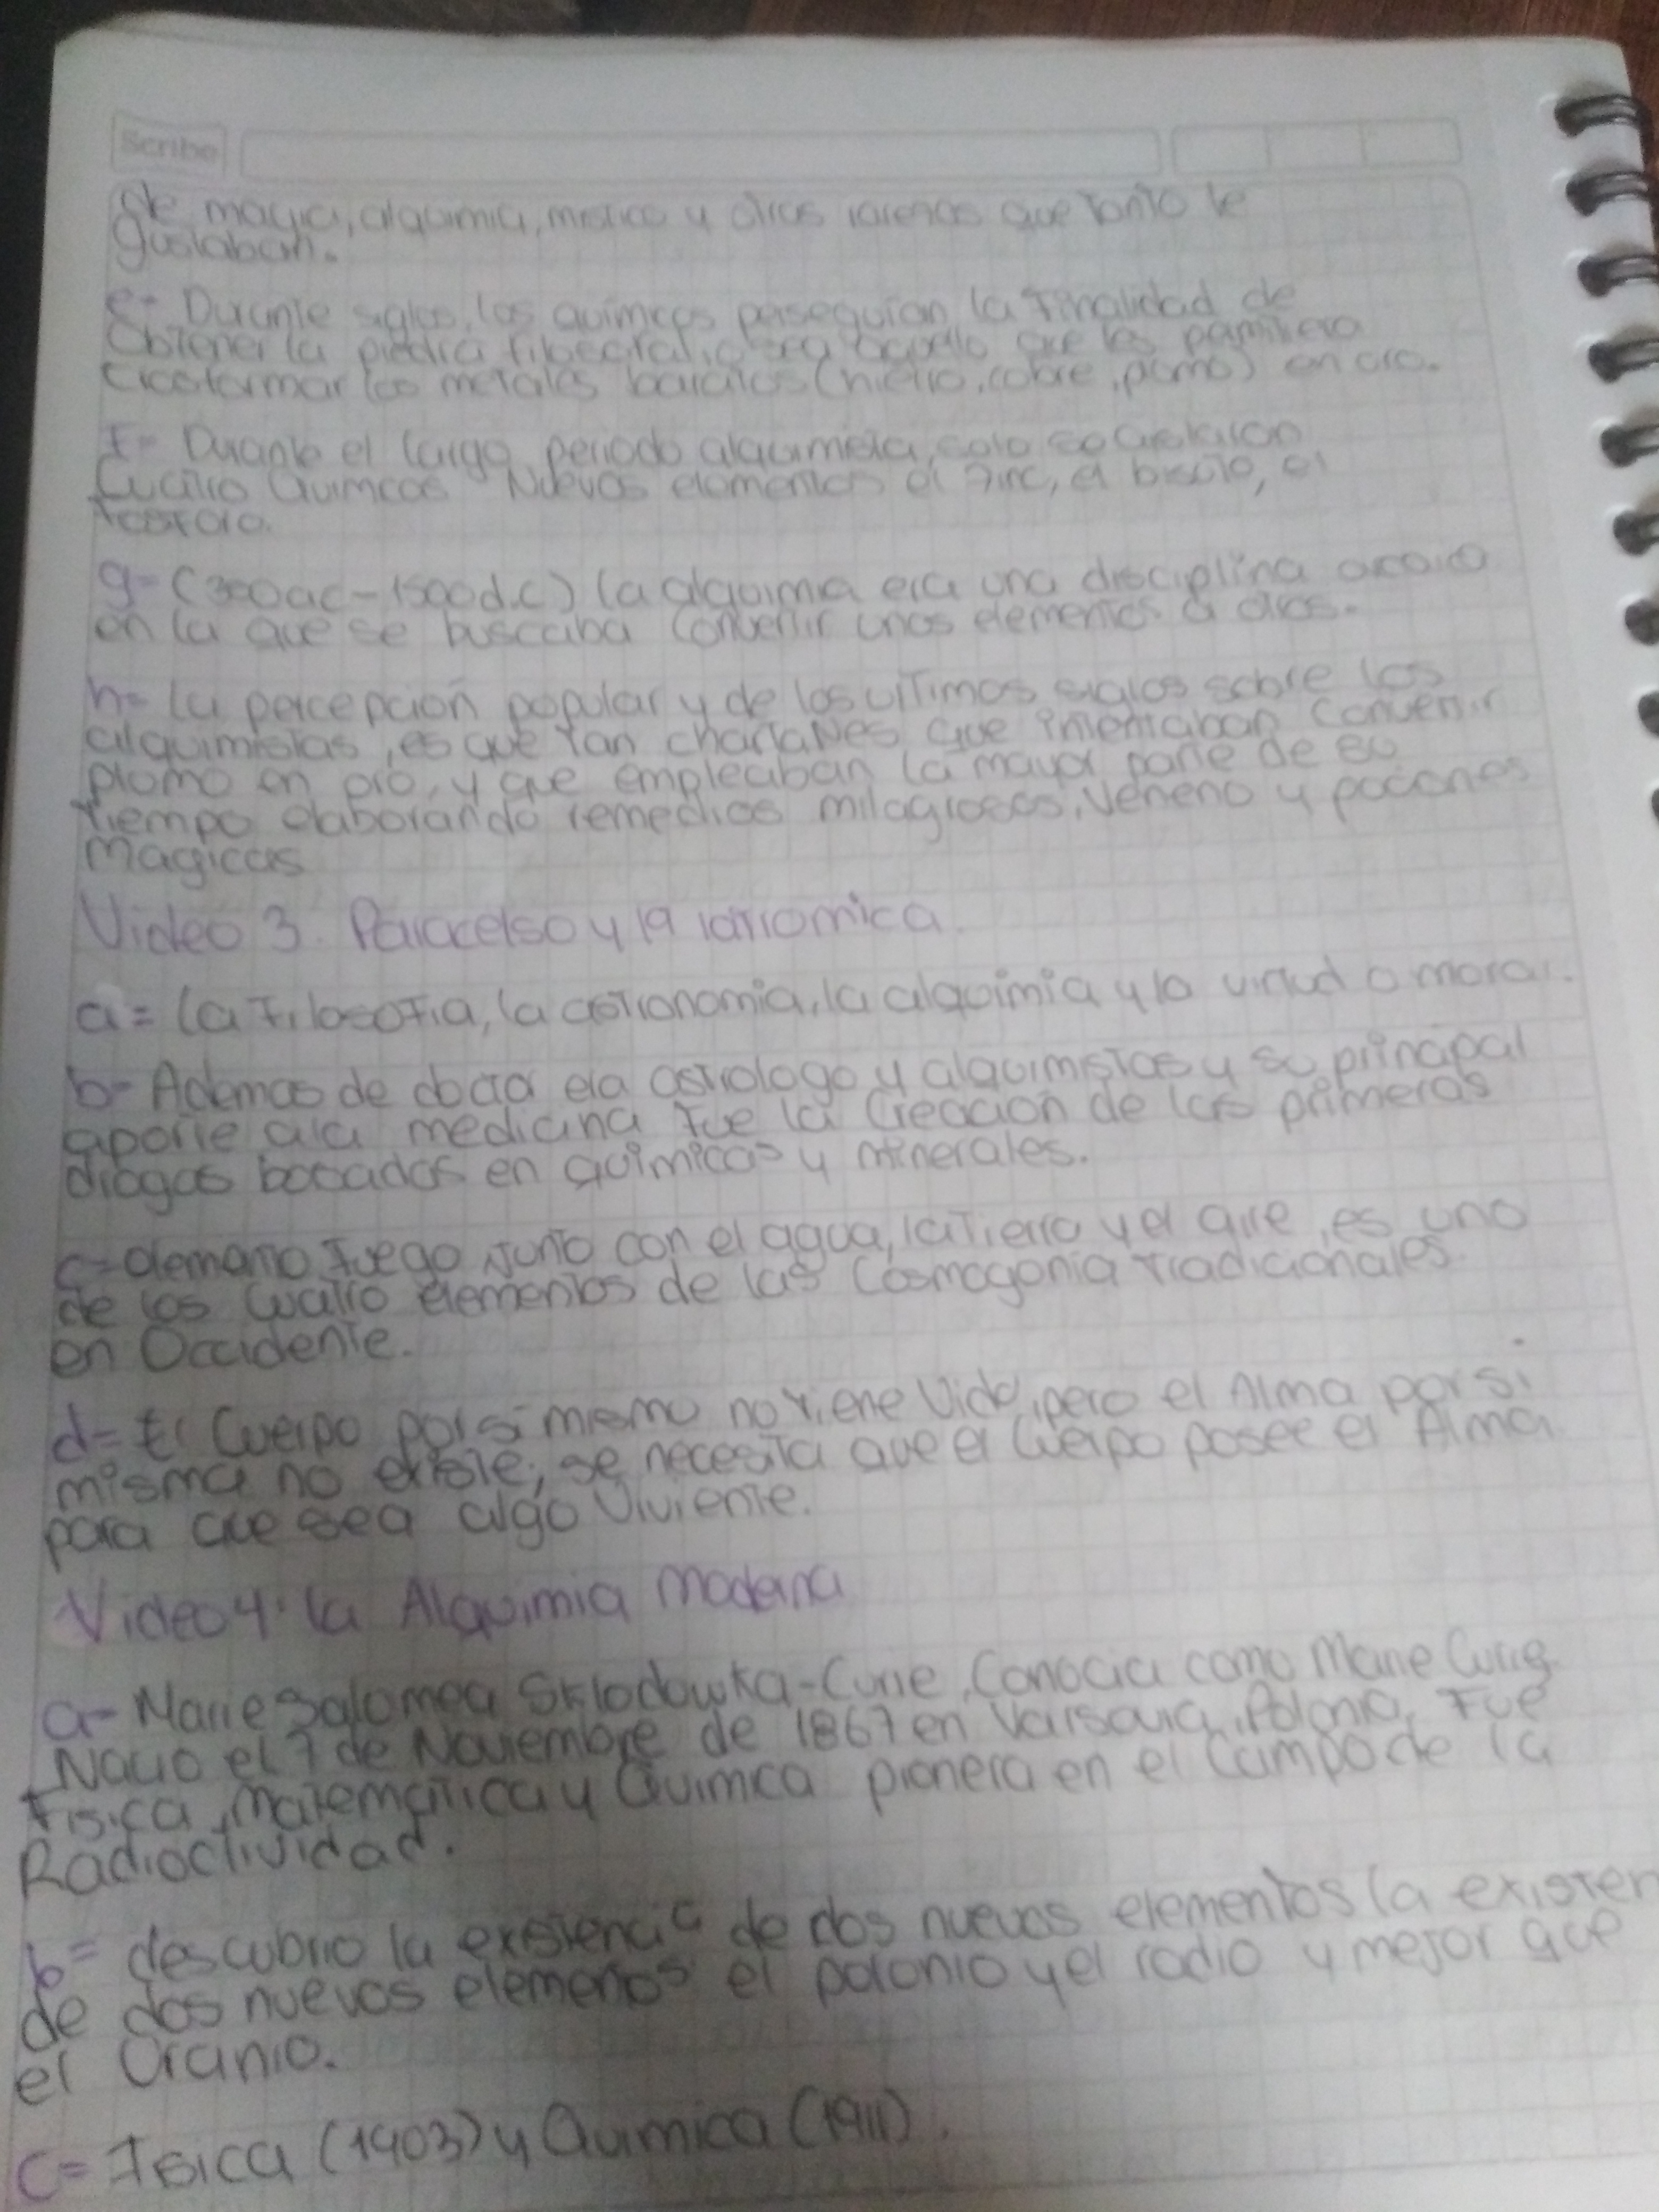 Scribe
de magia, alquimia, mistico y otras rarezas que tanto le
gustaban.
e= Durante siglos, los químicos perseguian la finalidad de
Obtener la piedra filosofal, o sea aquello que les permitiera
transformar los metales baratos (hierro, cobre, plomo) en oro.
f= Durante el largo periodo alquimista, solo se
Cuatro Quimcos Nuevos elementos el zinc, el bismuto, el
fosforo.
g= (300ac-1500d.c) la alquimia era una disciplina
en la que se buscaba convertir unos elementos a otros.
h= la percepción popular y de los ultimos siglos sobre los
alquimistas, es que ran charlaNes que intentaban convertir
plomo en oro, y que empleaban la mayor parte de su
tiempo elaborando remedios milagrosos, Veneno y pociones
Magicas
Video 3. Paracelso y la iatromica.
a= la Filosofia, la astronomia, la alquimia y la virtud o moral.
b= Ademas de doctor era astrologo y alquimistas y su principal
aporte ala medicina fue la Creacion de las primeras
drogas basadas en quimicas y minerales.
c= elemento fuego junto con el agua, la Tierra y el aire, es uno
de los cuatro elementos de las Cosmogonia tradicionales
en Occidente.
d= El Cuerpo por si mismo no tiene Vida, pero el Alma por si
misma no existe; se necesita que el Cuerpo posee el Alma
para que sea algo Viviente.
Video 4: la Alquimia Moderna
a= Marie Salomea Sklodowka-Curie, Conocia como Marie Curie.
Nacio el 7 de Noviembre de 1867 en Varsovia, Polonia, Fue
Fisica, matematica y Quimica pionera en el Campo de la
Radioctividad.
b= descubrio la existencia de dos nuevos elementos la existen
de dos nuevos elementos el polonio y el radio y mejor que
el Uranio.
c= Fisica (1903) y Quimica (1911).